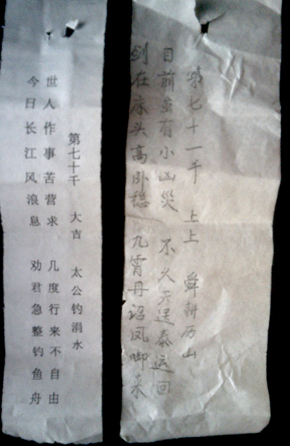 第七十千 大吉 太公钓涓水
世人作事苦营求 几度行来不自由
今日长江风浪息 劝君急整钓鱼舟
第七十一千 上上 舜耕历山
目前虽有小凶災 不久送泰运回
剑在床头高卧稳 九霄丹诏凤啣来